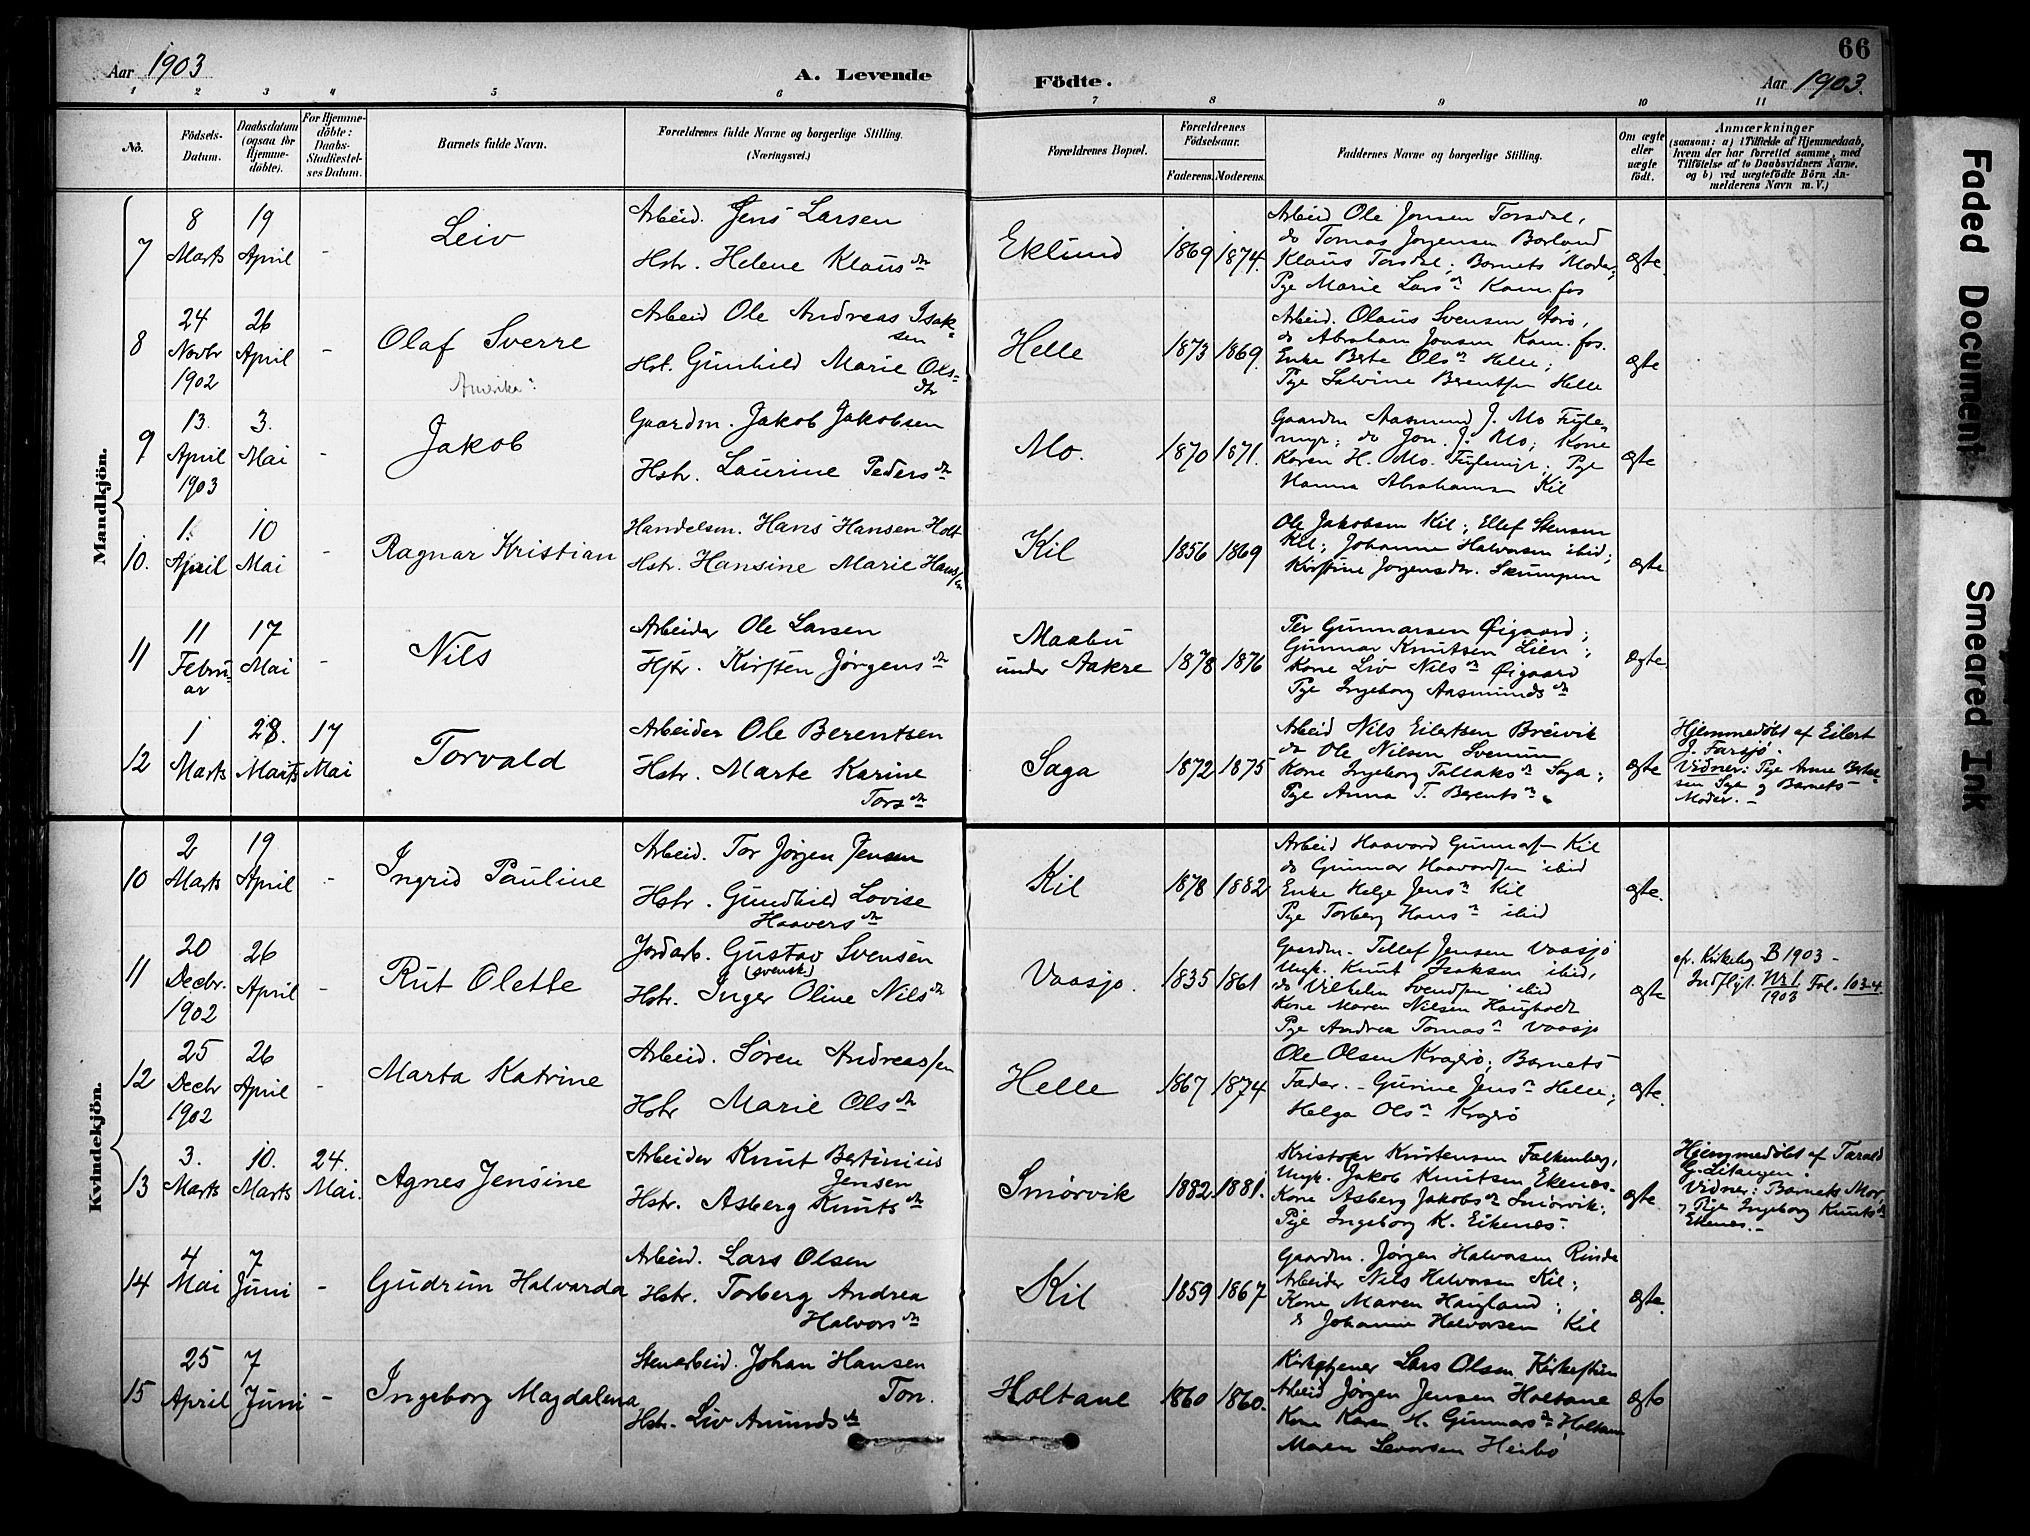 66
Aar 1903
A. Levende
Födte.
Aar 1903.
1 2 3 4 5 6 7 8 9 10 11
Nô.
Födsels-
Datum.
Daabsdatum
(ogsaa for
Hjemme-
döbte).
For Hjemme-
döbte:
Daabs-
Stadfæstel-
ses Datum.
Barnets fulde Navn.
Forældrenes fulde Navne og borgerlige Stilling.
(Næringsvei.)
Forældrenes Bopæl.
Forældrenes
Födselsaar.
Faderens. Moderens.
Faddernes Navne og borgerlige Stilling.
Om ægte
eller
uægte
födt.
Anmærkninger
(saasom: a) i Tilfælde af Hjemmedaab,
hvem der har forrettet samme, med
Tilföielse af to Daabsvidners Navne.
og b) ved uægtefödte Börn An-
melderens Navn m. V.)
Mandkjön.
7
8
Marts
19
April
-
Leiv
Arbeid. Jens Larsen
Hstr. Helene Klausdtr
Eklund
1869 1874.
Arbeid Ole Jonsen Torsdal,
do Tomas Jörgensen Borland
Klaus Torsdal; Barnets Moder;
Pge Marie Larsdtr Kam.fos
ægte.
8
24
Novbr
1902
26
April
-
Olaf Sverre
Amerika?
Arbeid Ole Andreas Isak-
sen
Hst. Gunhild Marie Ols-
dtr
Helle
1873 1869.
Arbeid. Olaus Svensen Aarö,
do Abraham Jonsen Kam.fos.
Enke Berte Olsdtr Helle;
Pge Salvine Berentsen Helle
ægte
9
13.
April
1903
3.
Mai
-
Jakob
Gaardm. Jakob Jakobsen
Hstr. Laurine Pedersdtr
Mo.
1870 1871.
Gaardm Aasmund J. Mo Fugle-
myr; do Jon. J. Mo; Kone
Karen H. Mo. Fuglemyr; Pge
Hanna Abrahams Kil
ægte
10.
1.
April
10
Mai
-
Ragnar Kristian
Handelsm. Hans Hansen Holt
Hstr. Hansine Marie Hans/en
Kil
1856 1869
Ole Jakobsen Kil; Ellef Stensen
Kil; Johanne Halvorsen ibid;
Kirstine Jörgensdtr. Skumpen
ægte
11
11
Febru-
ar
17
Mai
-
Nils
Arbeider Ole Larsen
Hstr. Kirsten Jörgensdtr
Maabu
under Aakre
1878 1876
Per Gunnarsen Öigaard;
Gunnar Knutsen Lien;
Kone Liv Nilsdtr Öigaard
Pge Ingeborg Aasmundsdtr
ægte.
12
1
Marts
28.
Marts
17
Mai
Torvald
Arbeider Ole Berentsen
Hstr. Marte Karine
Torsdtr
Saga
1872 1875
Arbeid Nils Eilertsen Breivik
do Ole Nilsen Svenum
Kone Ingeborg Tallaksdtr Saga;
Pge Anna T. Berentsdtr.
ægte
Hjemmedöbt af Eilert
J. Farsjö.
Vidner: Pge Anne
og Barnets
Moder. –
Kvindekjön.
10
2
Marts
19
April
-
Ingrid Pauline
Arbeid. Tor Jörgen Jensen
Hstr. Gundhild Lovise
Haaversdtr
Kil
1878 1882
Arbeid Haavard Gunnarsen Kil
do Gunnar Haavardsen ibid
Enke Helge Jensdtr Kil
Pge Torberg Hansdtr ibid
ægte.
11
20
Decbr.
1902
26
April
-
Rut Olette
Jordarb. Gustav Svensen
(svensk)
Hstr. Inger Oline Nilsdtr
Vaasjø.
1835 1861
Gaardm. Tellef Jensen Vaasjö
Ungk. Knut Isaksen ibid,
do Vilhelm Svendsen ibid
Kone Maren Nilsen Haugholt
Pge Andrea Tomasdtr Vaasjø
ægte
cfr. Kirkebog B 1903 –
Indflyt. Nr 1 1903 Fol. 103-4.
12
25
Decbr
1902
26
April
-
Marta Katrine
Arbeid. Sören Andreas/en
Hstr Marie Olsdtr
Helle
1867 1874
Ole Olsen Kragerö; Barnets
Fader. – Gurine Jensdtr Helle;
Helga Olsdtr Kragerö
ægte.
13
3.
Marts
10.
Marts
24.
Mai.
Agnes Jensine
Arbeider Knut Bertinius
Jensen
Hstr. Asberg Knutsdtr
Smörvik
1882. 1881.
Kristofer Knutensen Falkenberg,
Ungk. Jakob Knutsen Ekenes.
Kone Asberg Jakobsdtr Smörvik;
Pge Ingeborg K. Eikenes.
ægte.
Hjemmedöbt af Tarald
G. Litangen.
Vidner: Barnets Mor,
og Pige Ingeborg Knutsdtr
Ekenes. –
14
4
Mai
7
Juni
-
Gudrun Halvarda
Arbeid. Lars Olsen
Hstr. Torberg Andrea
Halvorsdtr
Kil
1859 1867
Gaardm. Jörgen Halvorsen Rinde
Arbeider Nils Halvorsen Kil;
Kone Maren Haugland;
do Johanne Halvorsen Kil
ægte.
15
25
April
7
Juni
-
Ingeborg Magdalena
Stenarbeid. Johan Hansen
Ton.
Hstr. Liv Amundsdtr
Holtane
1860 1860.
Kirketjener Lars Olsen Kirkestuen
Arbeid Jörgen Jensen Holtane
Kone Karen H. Gunnarsdtr Holtane
Maren Levorsen Heibö
ægte
Faded Document
Smeared Ink